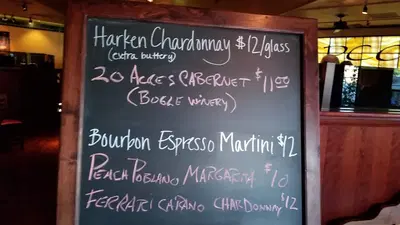 Harken Chardonnay $12/glass
(extra buttery)
20 Acres Cabernet $11.00
(Bogle Winery)
Bourbon Espresso Martini $12
Peach Poblano Margarita $10
Ferrari Carano Chardonnay $12